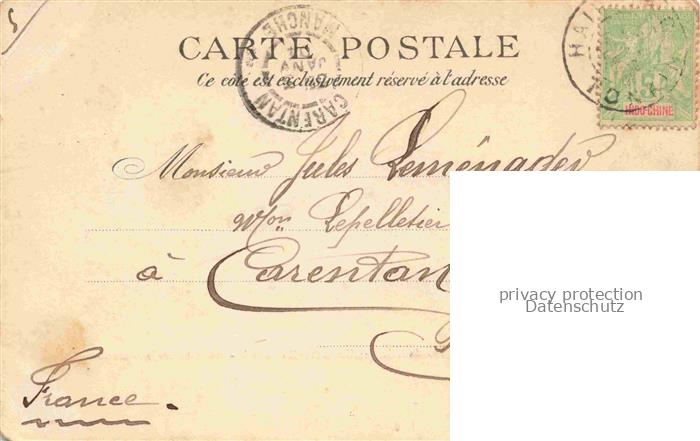 5
CARTE POSTALE
Ce côté est exclusivement réservé à l'adresse
CARENTAN MANCHE
JANV
INDO-CHINE
5
Monsieur Jules
Mon Lepelletier
à Carentan
France.
privacy protection
Datenschutz